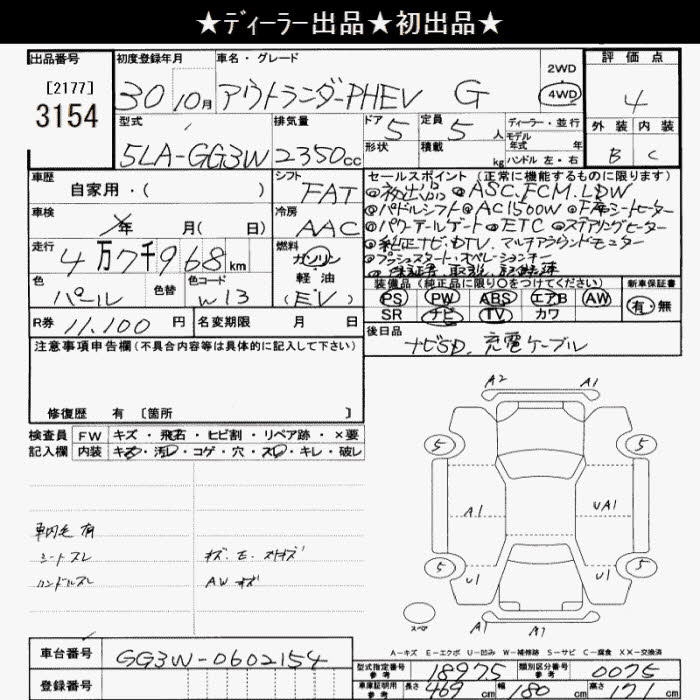 ★ディーラー出品★初出品★
出品番号 初度登録年月 車名・グレード 評価点
[2177] 30 10月 アウトランダーPHEV G 2WD 4WD 4
3154
型式 排気量 ドア 定員 ディーラー・並行 外装 内装
5LA-GG3W 2350cc 5 5人 モデル年式 年式 B C
形状 積載 kg ハンドル 左・右
車歴 シフト セールスポイント (正常に機能するものに限ります)
自家用・( ) FAT ◎初出品 ◎ASC.FCM.LDW
車検 冷房 ◎パドルシフト ◎AC1500W ◎F席シートヒーター
年 月( 日) AAC ◎パワーテールゲート ◎ETC ◎ステアリングヒーター
走行 燃料 ◎純正ナビ・DTV. マルチアラウンドモニター
4万7千968km ガソリン ◎プッシュスタート・オペレーションキー
色 色替 色コード 軽油 ◎保証書、取説、記録簿
パール W13 (EV) 装備品 (純正品に限り○をつけてください) 新車保証書
PS PW ABS エアB AW 有・無
R券 11.100円 名変期限 月 日 SR ナビ TV カワ
後日品
注意事項申告欄(不具合内容等は具体的に記入して下さい) ナビSD. 充電ケーブル
修復歴 有 [箇所 ]
検査員 FW キズ・飛石・ヒビ割・リペア跡・×要
記入欄 内装 キズ・汚レ・コゲ・穴・スレ・キレ・破レ
A2 A1
5 5
A1 UA1
5 5
U1 U1
車内毛有
シートスレ キズ. E. スリキズ
ハンドルスレ AW キズ
スペア A1 A1
A-キズ E-エクボ U-凹み W-補修跡 S-サビ C-腐食 XX-交換済
車台番号 GG3W-0602154
型式指定番号 参考 18975 類別区分番号 参考 0075
登録番号
車庫証明用 参考 長さ 469cm 幅 180cm 高さ 171cm